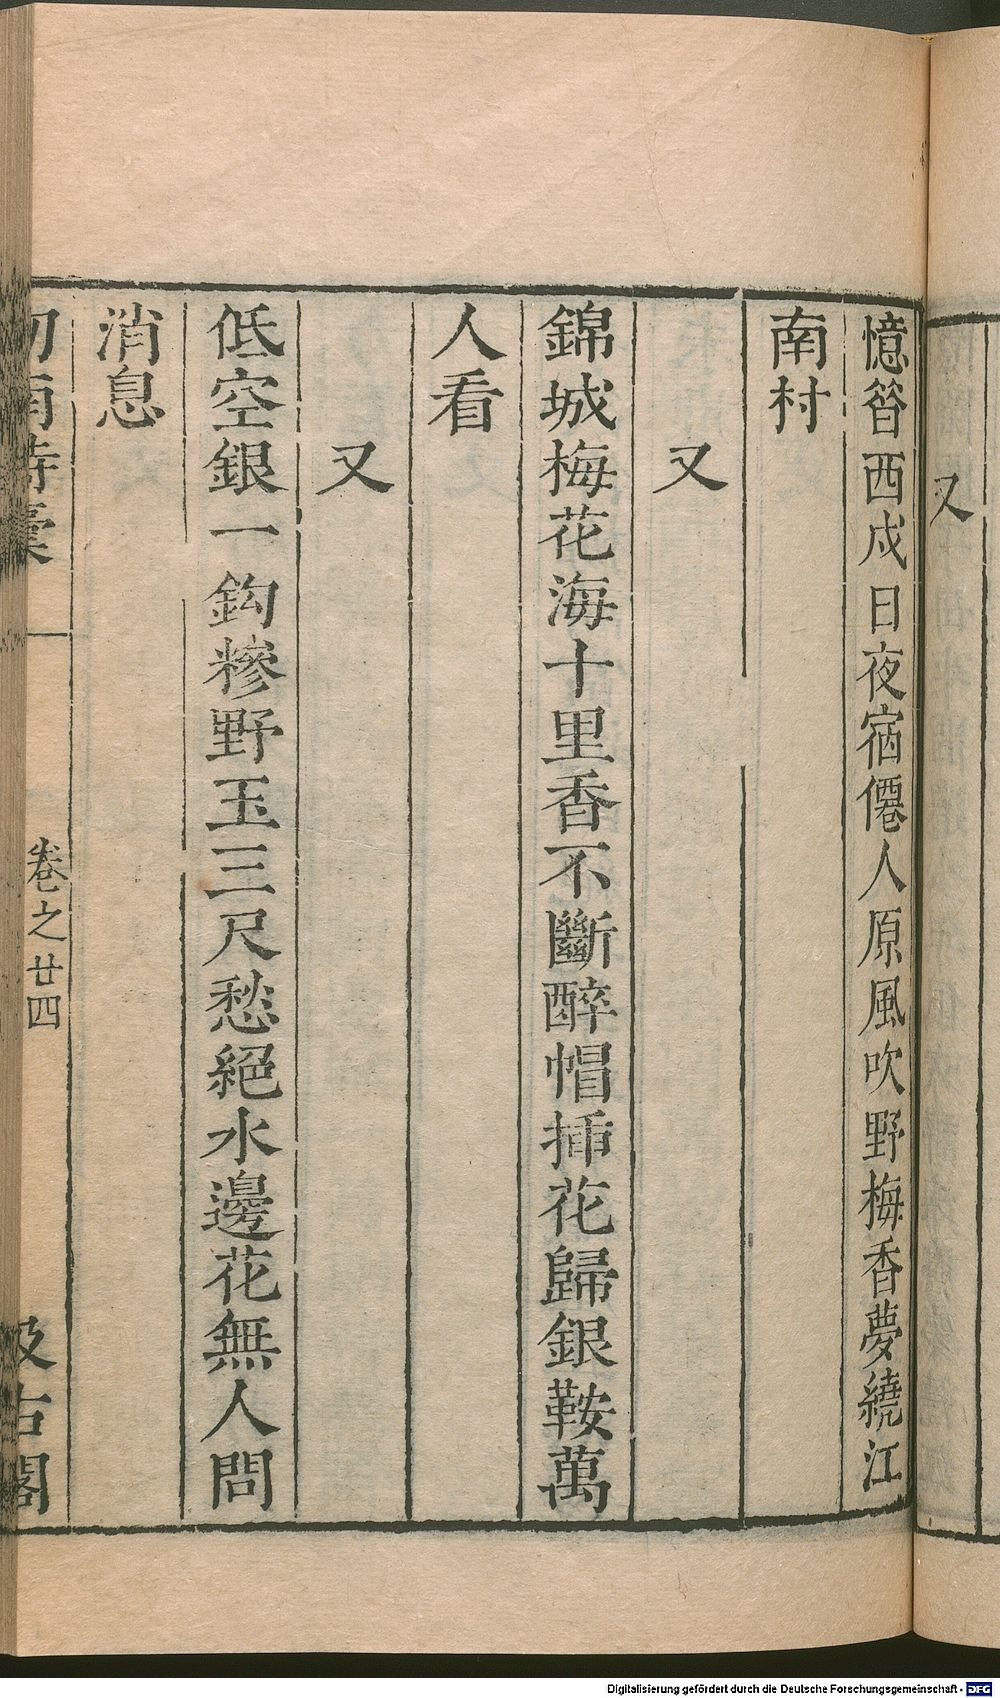 又
憶昝西戍日夜宿僊人原風吹野梅香夢繞江
南村
又
錦城梅花海十里香不斷醉帽揷花歸銀鞍萬
人看
又
低空銀一鈎糝野玉三尺愁絕水邊花無人問
消息
劒南詩稾
卷之廿四
汲古閣
Digitalisierung gefördert durch die Deutsche Forschungsgemeinschaft - DFG